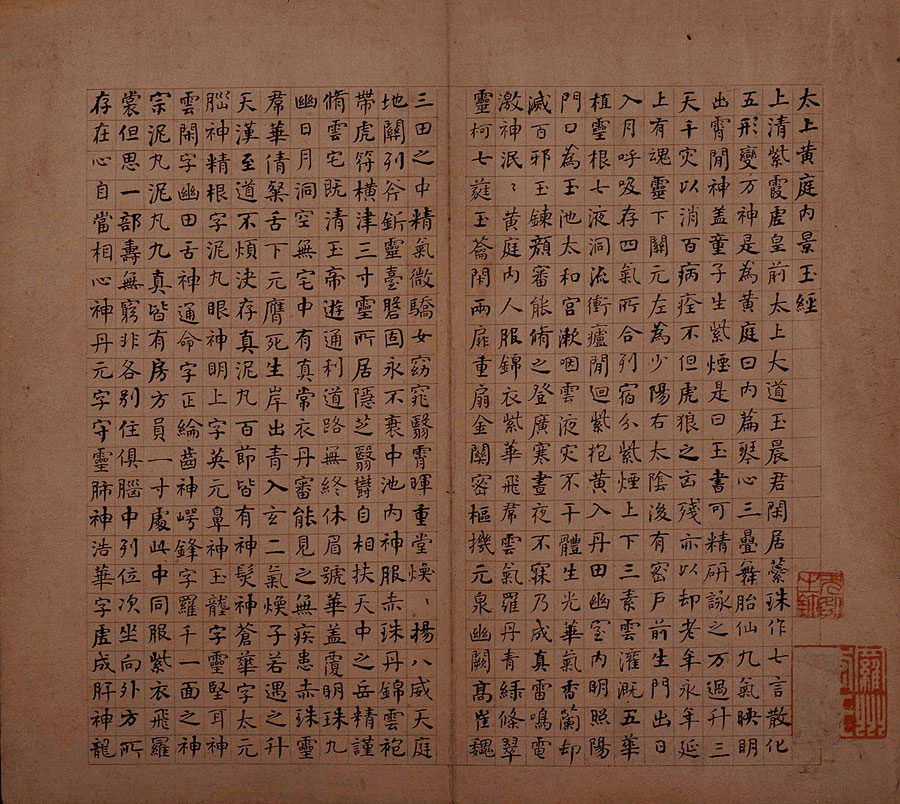 太上黃庭內景玉經
上清紫霞虛皇前太上大道玉晨君閑居蘂珠作七言散化
五形變万神是為黃庭曰內篇琴心三疊舞胎仙九氣映明
出霄閒神盖童子生紫煙是曰玉書可精研詠之万過升三
天千灾以消百病痊不但虎狼之凶殘亦以却老年永年延
上有魂靈下關元左為少陽右太陰後有密戶前生門出日
入月呼吸存四氣所合列宿分紫煙上下三素雲灌溉五華
植靈根七液洞流衝廬閒迴紫抱黃入丹田幽室內明照陽
門口為玉池太和宮漱咽雲液灾不干體生光華氣香蘭却
滅百邪玉鍊顏審能脩之登廣寒晝夜不寐乃成真雷鳴電
激神泯〻黃庭內人服錦衣紫華飛帬雲氣羅丹青緑條翠
靈柯七蕤玉籥閇兩扉重扇金關密樞機元泉幽闕高崔巍
三田之中精氣微驕女窈窕翳霄暉重堂煥〻揚八威天庭
地關列斧釿靈臺盤固永不衰中池內神服赤珠丹錦雲袍
帶虎符橫津三寸靈所居隱芝翳欝自相扶天中之岳精謹
脩雲宅既清玉帝遊通利道路無終休眉號華盖覆明珠九
幽日月洞空無宅中有真常衣丹審能見之無疾患赤珠靈
帬華倩粲舌下元膺死生岸出青入玄二氣煥子若遇之升
天漢至道不煩決存真泥丸百節皆有神髮神蒼華字太元
腦神精根字泥丸眼神明上字英元鼻神玉壟字靈堅耳神
雲閑字幽田舌神通命字正綸齒神崿鋒字羅千一面之神
宗泥丸泥丸九真皆有房方員一寸處此中同服紫衣飛羅
裳但思一部壽無窮非各別住俱腦中列位次坐向外方所
存在心自當相心神丹元字守靈肺神浩華字虛成肝神龍